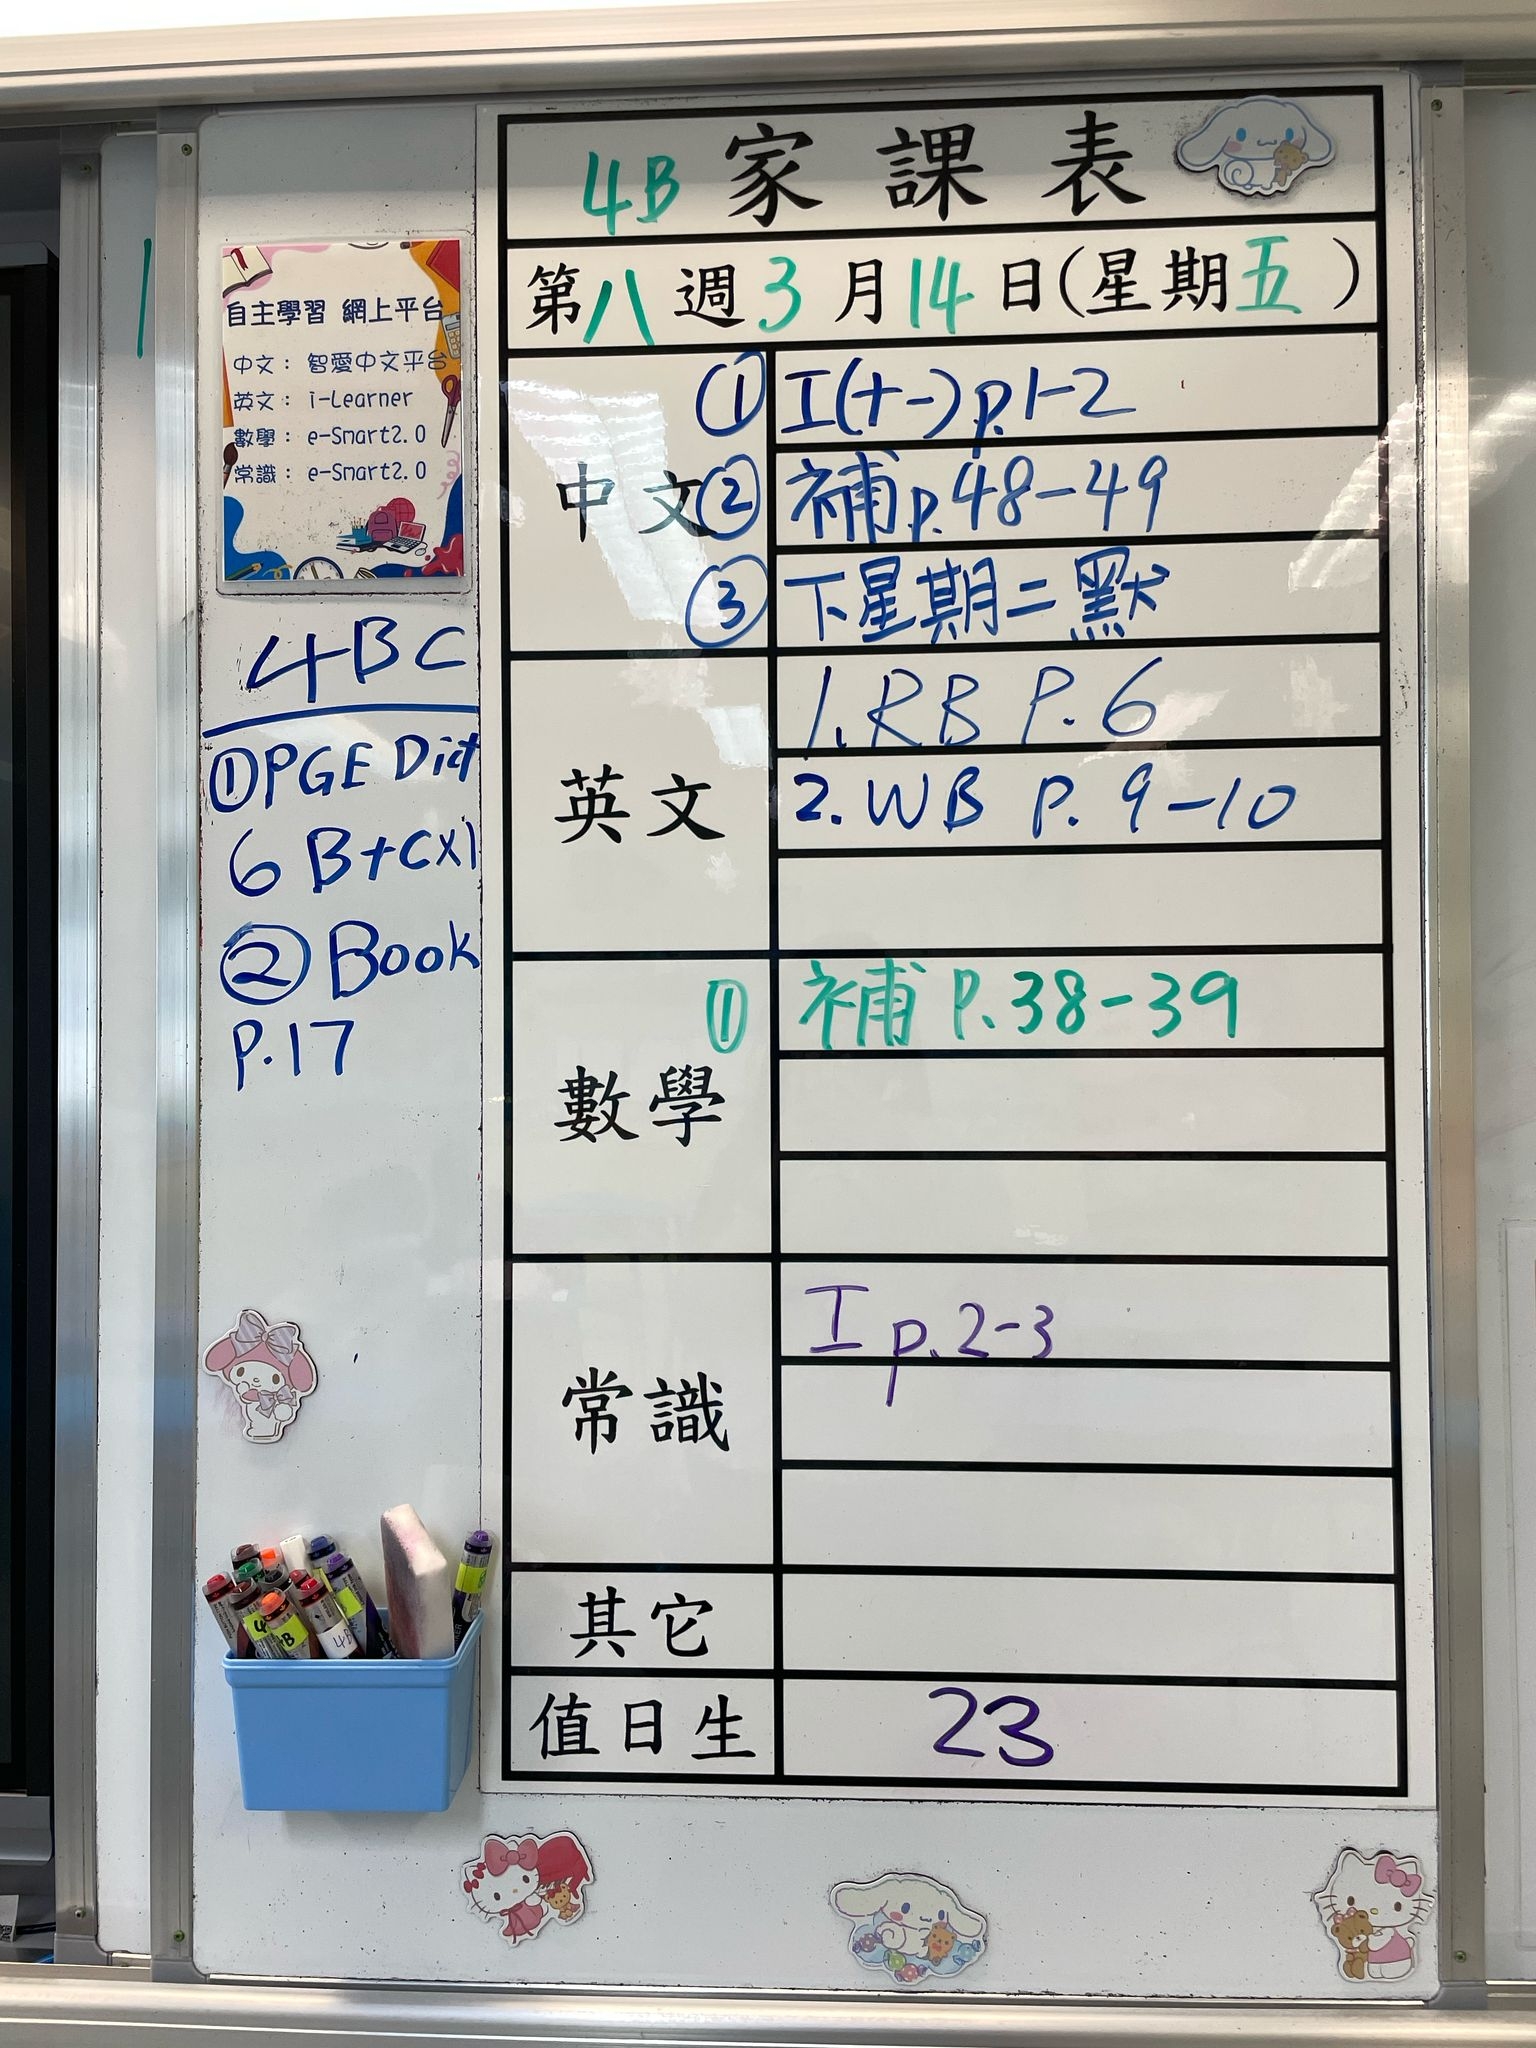 4B 家課表
第八週3月14日(星期五)
自主學習 網上平台
中文: 智愛中文平台
英文: i-Learner
數學: e-Smart2.0
常識: e-Smart2.0
4BC
①PGE Dict
6 B+C×1
②Book
P.17
中文
① I(十一)p.1-2
② 補p.48-49
③ 下星期二默
英文
1. RB P.6
2. WB P. 9-10
數學
① 補 P.38-39
常識
I p.2-3
其它
值日生
23
4B
4B